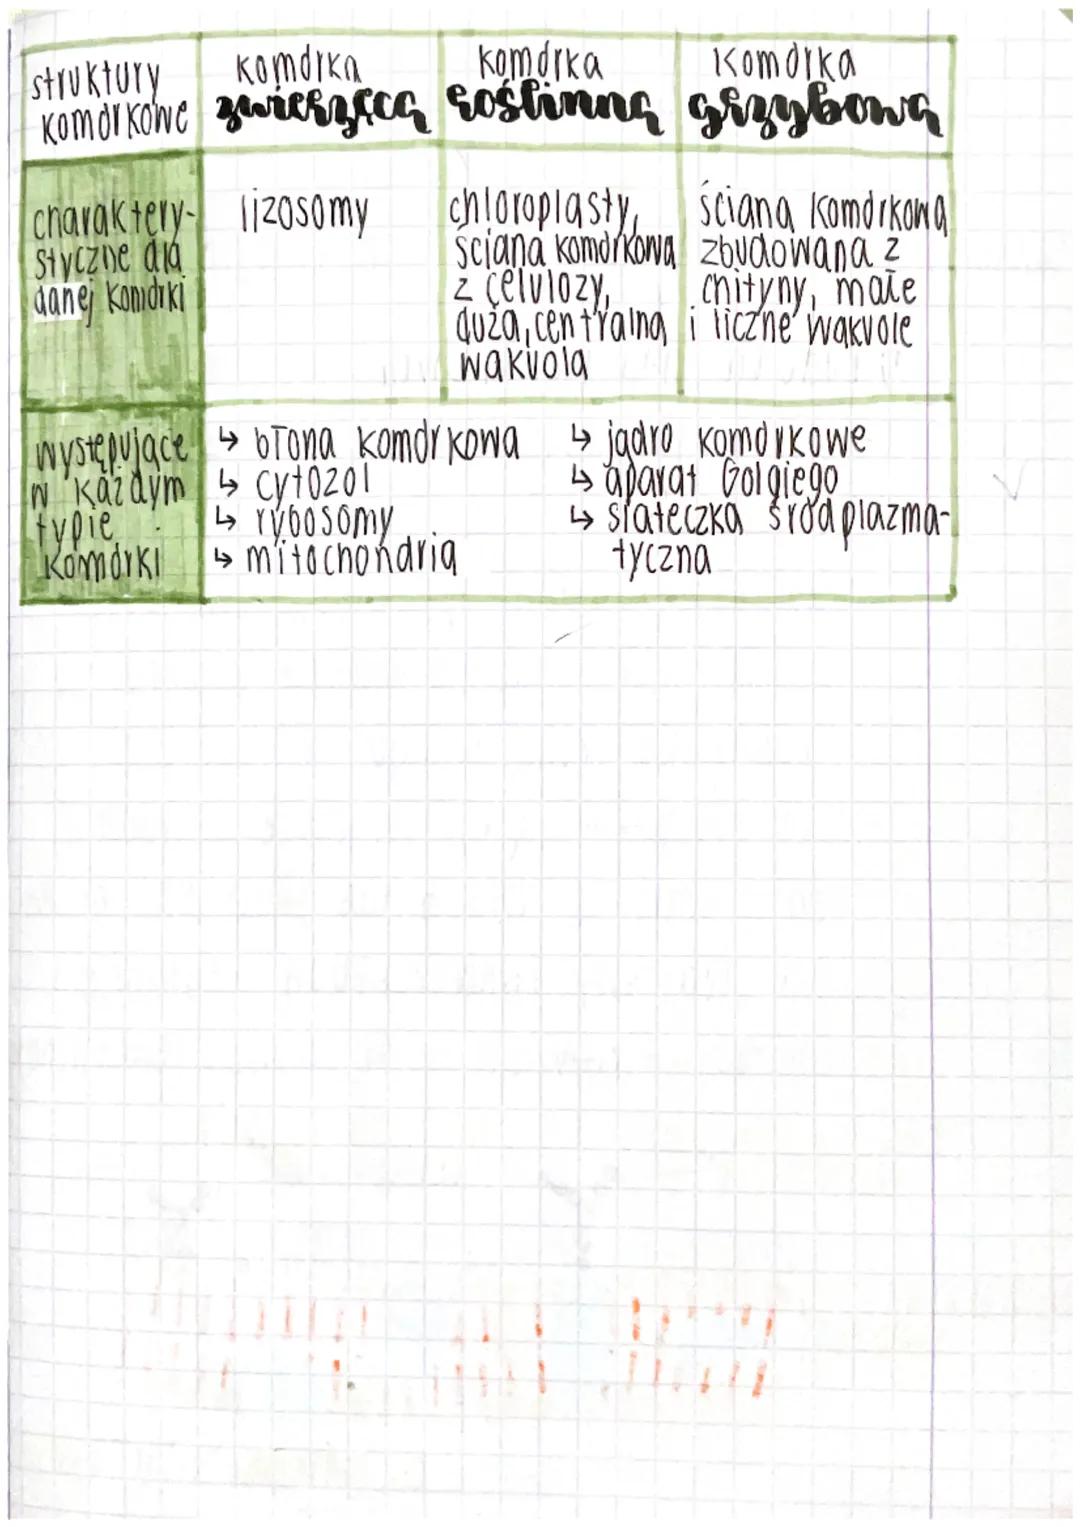 struktury
komórkowe
komórka
zwierzęca
komórka
roślinna
komórka
grzybowa
charaktery-
styczne dla
danej komórki
lizosomy
chloroplasty,
ściana komórkowa
z celulozy,
duża, centralna
wakuola
ściana komórkowa
zbudowana z
chityny, małe
i liczne wakuole
występujące
w każdym
typie
komórki
↳ błona komórkowa
↳ cytozol
↳ rybosomy
↳ mitochondria
↳ jądro komórkowe
↳ aparat Golgiego
↳ siateczka śródplazma-
tyczna